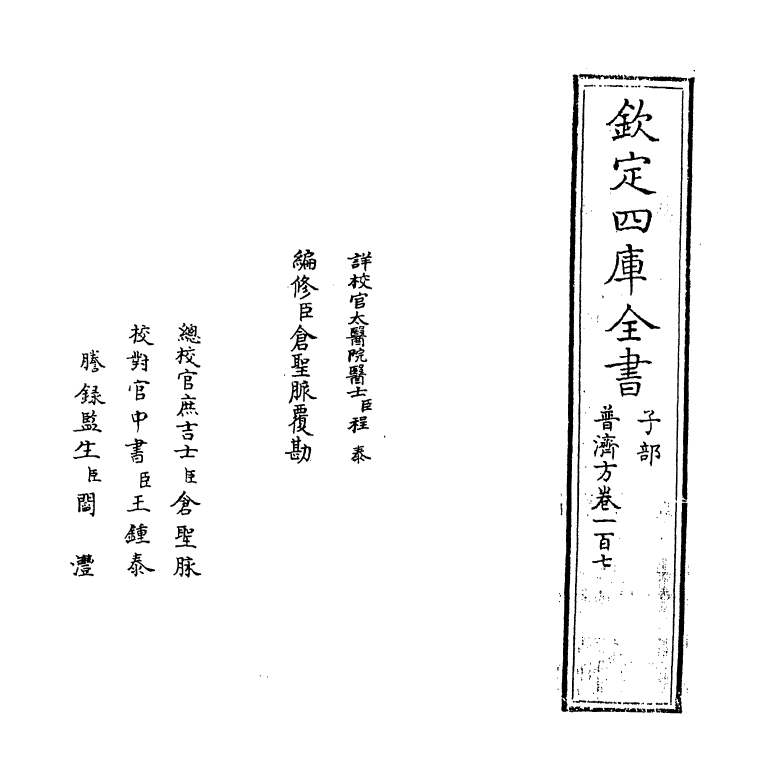 欽定四庫全書
子部
普濟方卷一百七
詳校官太醫院醫士臣程泰
編修臣倉聖脈覆勘
總校官庶吉士臣倉聖脉
校對官中書臣王鍾泰
謄録監生臣閻灃